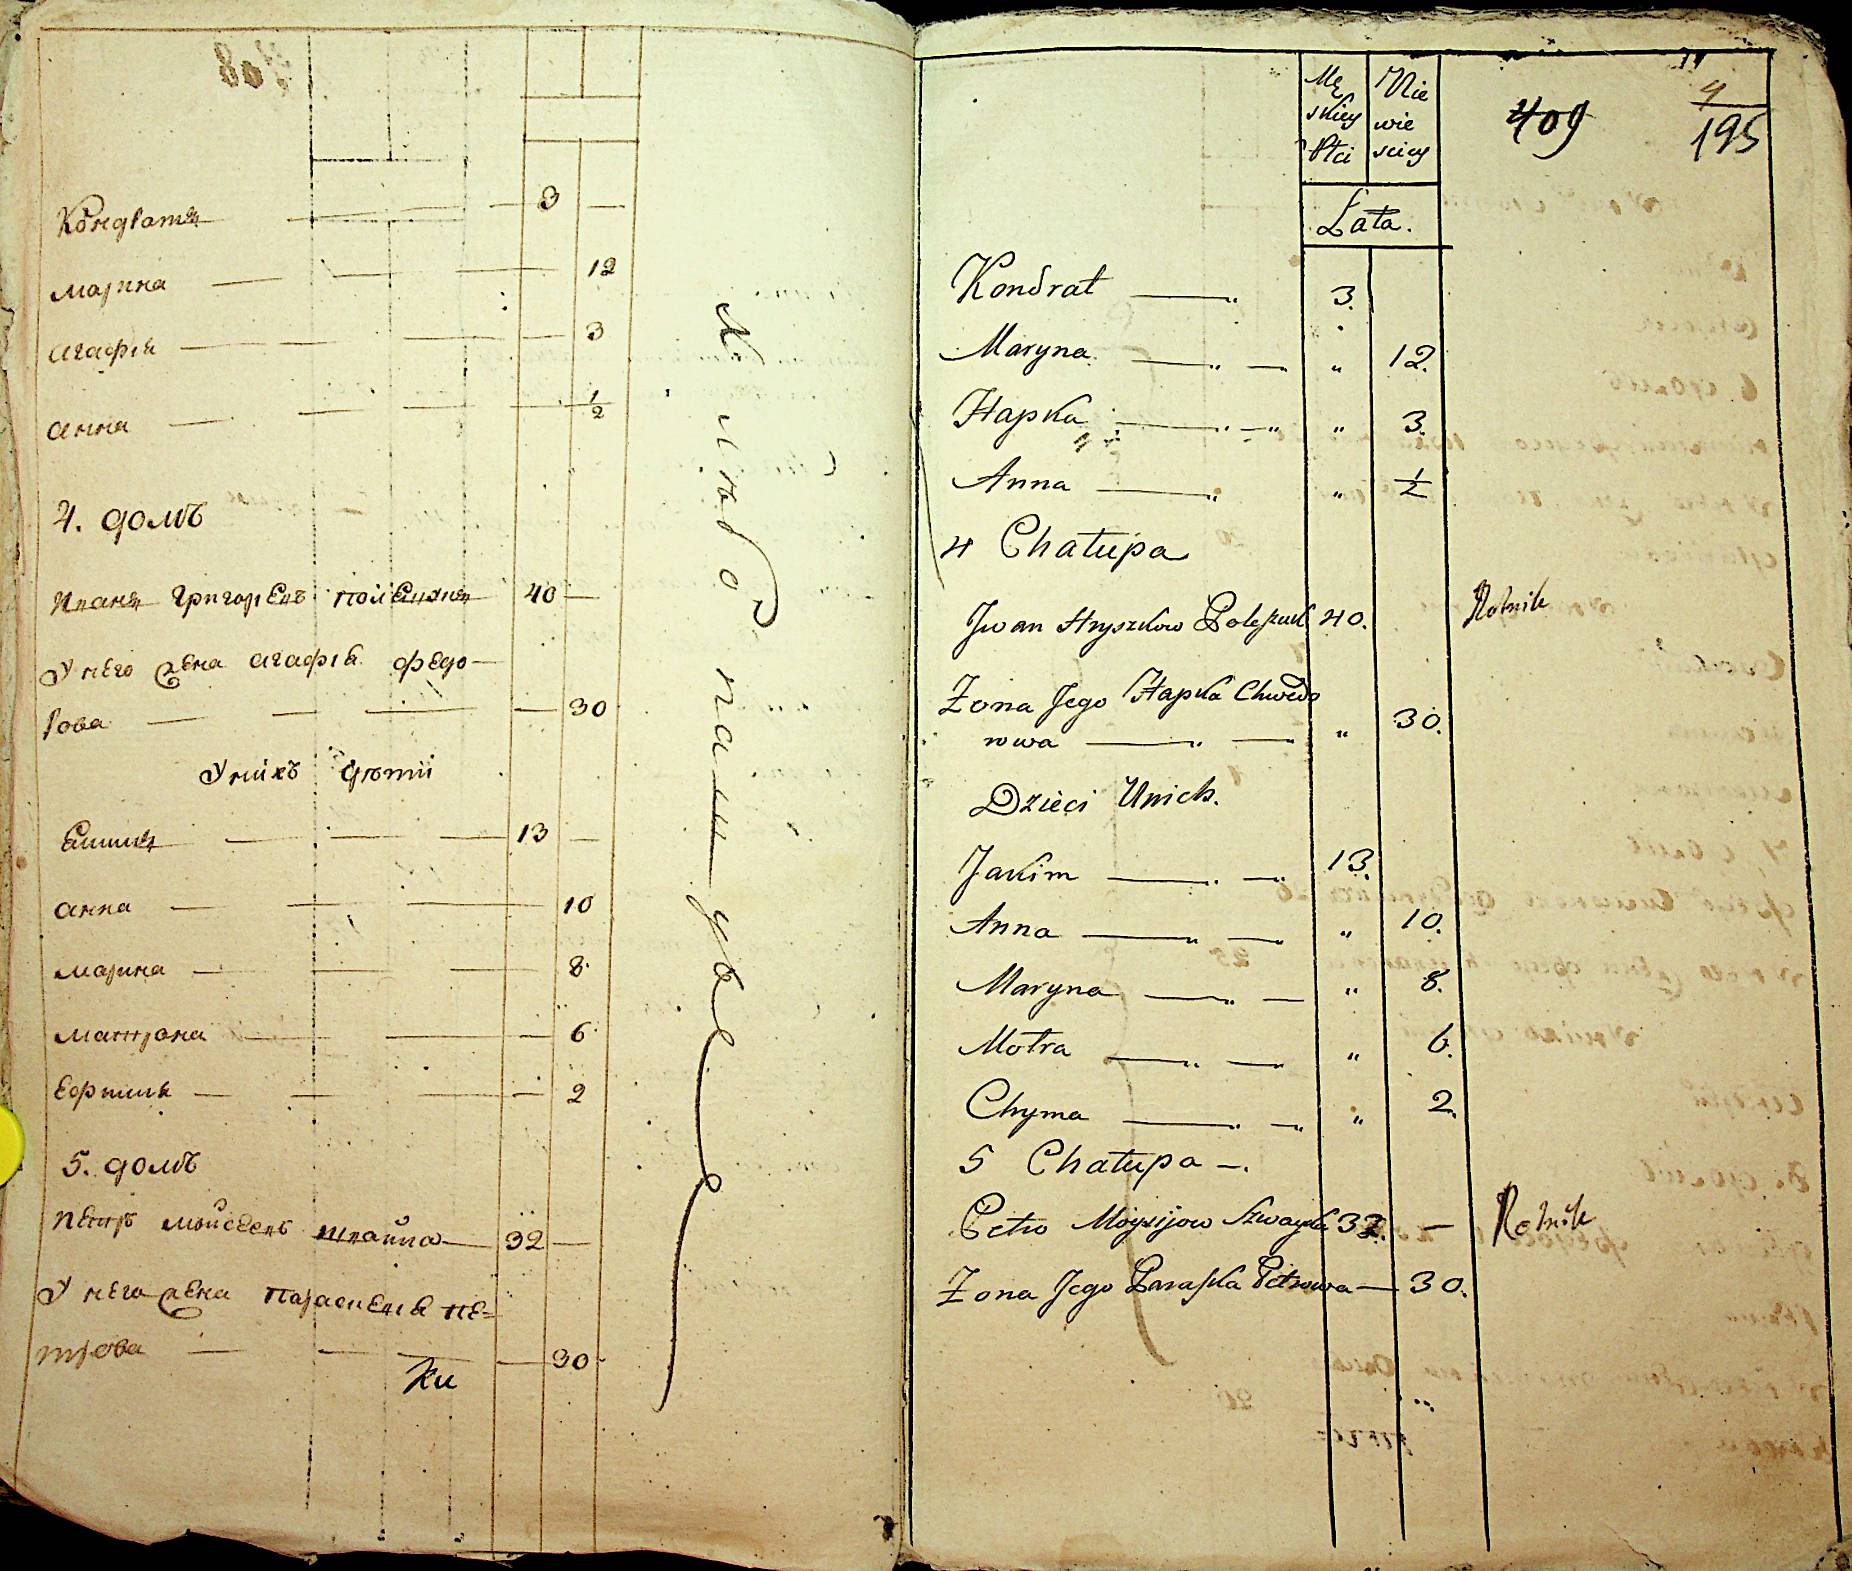 408
Кондратъ 3
марина 12
агафіа 3
анна 1/2
4. домъ
Иванъ Григорьевъ полещукъ 40
У него жена агафіа федо-
рова 30
У нихъ дѣтй
Екимъ 13
анна 10
марина 8
матрона 6
Ефимиа 2
5. домъ
Петръ мойсеевъ швайка 32
У него жена параскевиа пе=
трова 30
Mę Nie
skiey wie
Płci sciey
Lata.
409
4
195
Kondrat 3.
Maryna " 12.
Hapka " 3.
Anna " 1/2
4 Chałupa
Jwan Hryszkow Poleszuk 40. Rolnik
Zona Jego Hapka Chwedo
rowa " 30.
Dzieci Unich.
Jakim 13.
Anna " 10.
Maryna " 8.
Motra " 6.
Chyma " 2.
5 Chałupa
Petro Moysijow Szwayka 32. — Rolnik
Zona Jego Paraska Petrowa — 30.